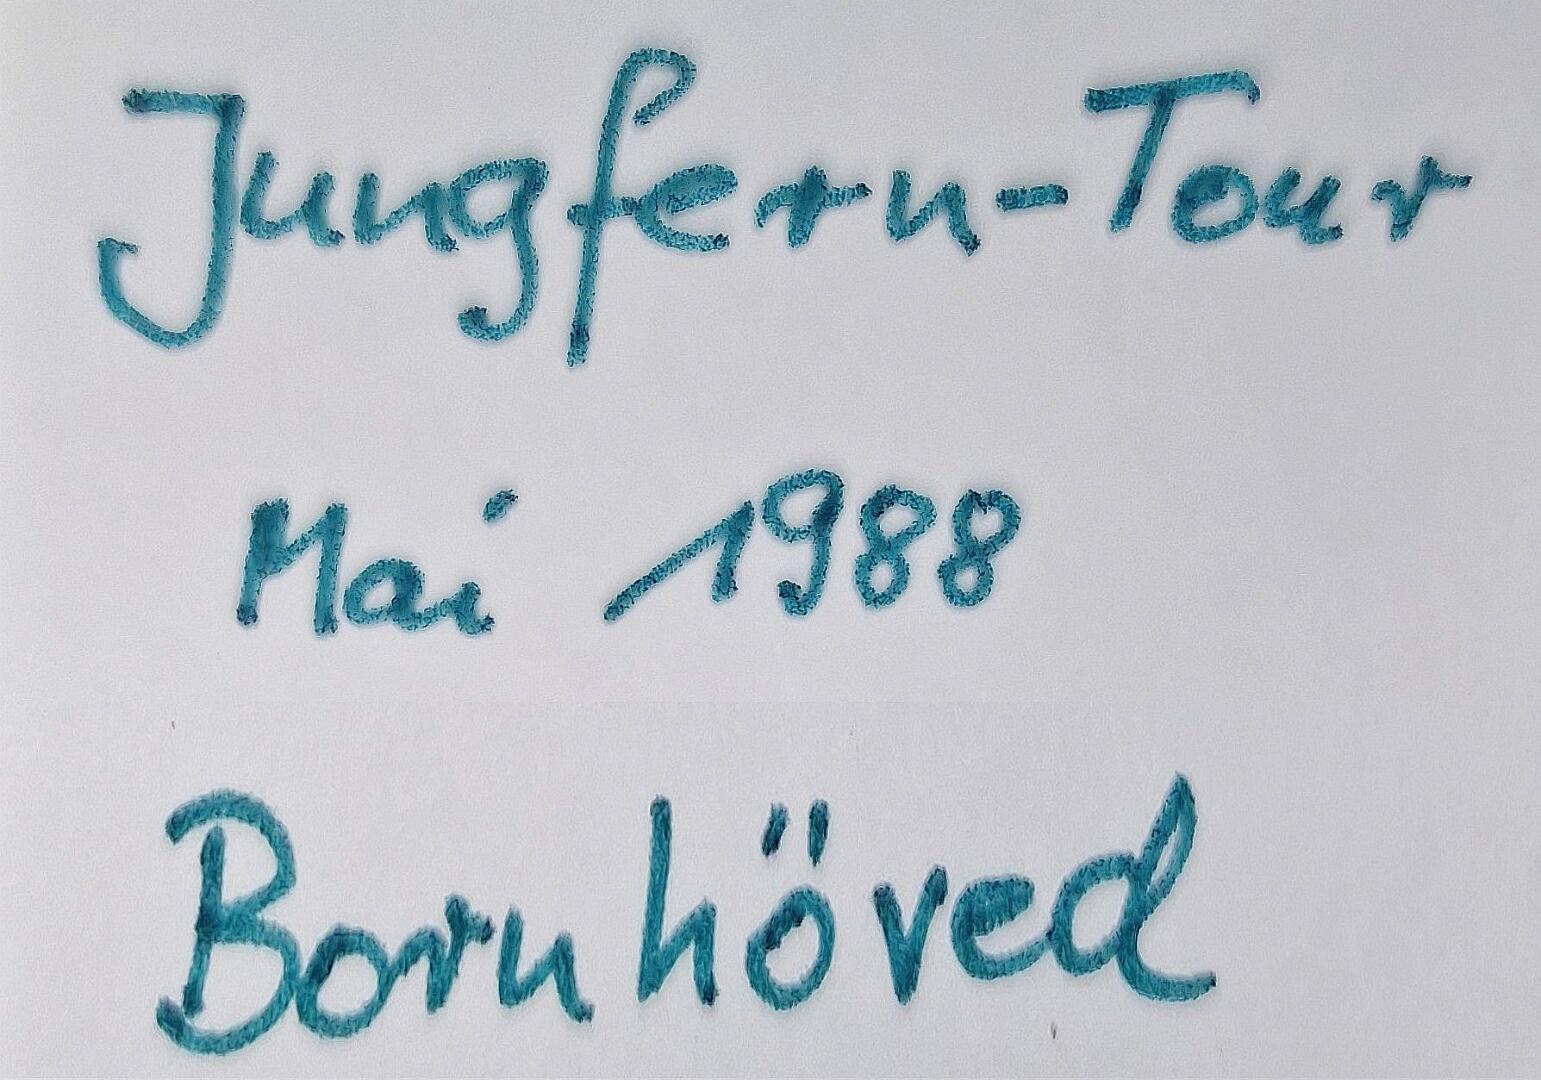 Jungfern-Tour
Mai 1988
Bornhöved